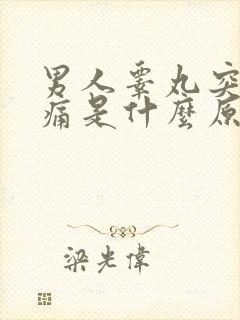 男人睾丸突
痛是什麼原
梁光偉